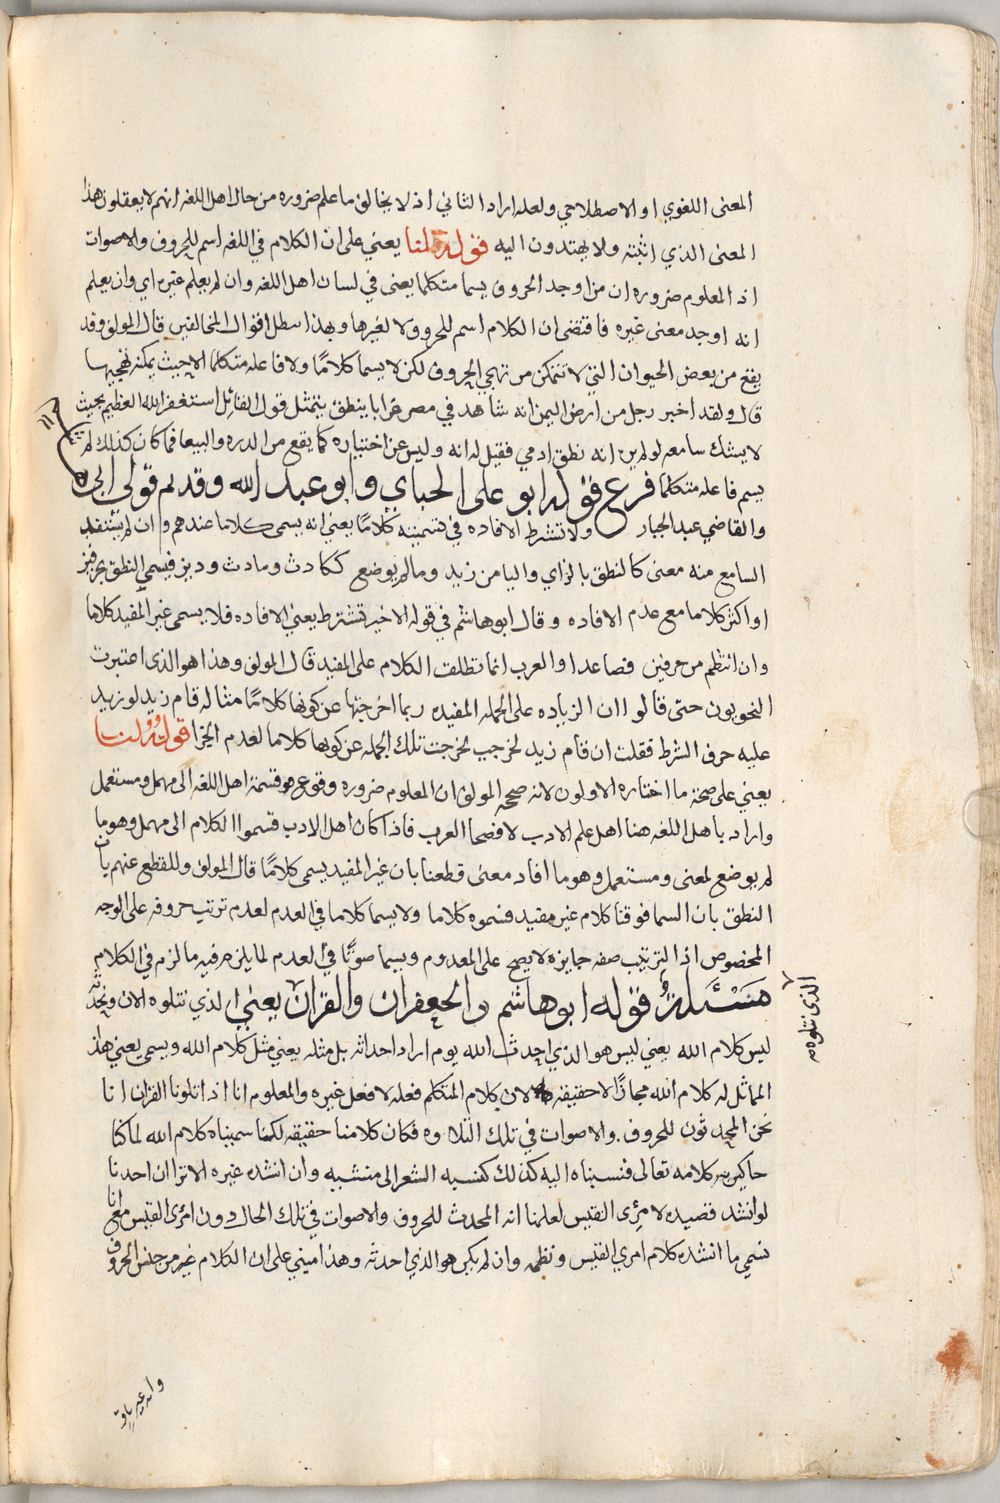 المعنى اللغوي او الاصطلاحي ولعله اراد الثاني اذ لا يخالف ما علم ضروره من حال اهل اللغه انهم لا يعقلون هذا
المعنى الذي اثبته ولا يهتدون اليه قوله لنا يعني على ان الكلام في اللغه اسم للحروف والاصوات
اذ المعلوم ضروره ان من اوجد الحروف يسما متكلما يعني في لسان اهل اللغه وان لم يعلم غيره اي وان لم يعلم
انه اوجد معنى غيره فاقتضى ان الكلام اسم للحروف لا لغيرها وبهذا بطل اقوال المخالفين قال المولف وقد
يقع من بعض الحيوان التي لا تتمكن من تهجي الحروف لكن لا يسما كلامًا ولا فاعله متكلما الا حيث يمكنه تهجيها
قال ولقد اخبر رجل من ارض اليمن انه شاهد في مصر غرابا ينطق بمثل قول القائل استغفر الله العظيم بحيث
لا يشك سامعه لو لم يره انه نطق ادمي فقيل له انه وليس عن اختياره كما يقع من الدره والببغا فما كان كذلك لم
يسم فاعله متكلما فرع قوله ابو علي الجباي وابو عبد الله وقديم قولي ابي ه
والقاضي عبد الجبار ولا تشترط الافاده في تسميته كلامًا يعني انه يسمى كلاما عندهم وان لم يستفد
السامع منه معنى كالنطق بالزاي واليا من زيد وما لم يوضع ككادث ومادث وديز فيسمى النطق بحرفين
او اكثر كلاما مع عدم الافاده وقال ابو هاشم في قوله الاخير تشترط يعني الافاده فلا يسمى غير المفيد كلاما
وان انتظم من حرفين فصاعدا والعرب انما تطلق الكلام على المفيد قال المولف وهذا هو الذي اعتبرت
النحويون حتى قالوا ان الزياده على الجمله المفيده ربما اخرجتها عن كونها كلامًا مثاله قام زيد لو زيد
عليه حرف الشرط فقلت ان قام زيد لخرجت تلك الجمله عن كونها كلاما لعدم الجزا قوله قلنا
يعني على صحة ما اختاره الاولون لانه صححه المولف ان المعلوم ضروره وقوع قسمة اهل اللغه الى مهمل ومستعمل
واراد باهل اللغه هنا اهل علم الادب لا فصحا العرب فاذا كان اهل الادب قسموا الكلام الى مهمل وهو ما
لم يوضع لمعنى ومستعمل وهو ما افاد معنى قطعنا بان غير المفيد يسمى كلامًا قال المولف وللقطع عنهم بان
النطق بان السما فوقنا كلام غير مفيد فسموه كلاما ولا يسما كلاما في العدم لعدم ترتب حروفه على الوجه
المخصوص اذ الترتيب صفه جايزه لا يصح على المعدوم ويسما صوتًا في العدم لما يلزم فيه ما لزم في الكلام
مسئلة قوله ابو هاشم والجعفران والقران يعني الذي نتلوه الان ونحدثه
الذي نتلوه صح
ليس كلام الله يعني ليس هو الذي احدث الله يوم اراد احداثه بل مثله يعني مثل كلام الله ويسمى يعني هذا
المماثل له كلام الله مجازًا لا حقيقه لان كلام المتكلم فعله لا فعل غيره والمعلوم انا اذا تلونا القران انا
نحن المحدثون للحروف والاصوات في تلك التلاوه فكان كلامنا حقيقه لكنا سميناه كلام الله لما كنا
حاكين كلامه تعالى فنسبناه اليه كذلك كنسبه الشعر الى منشيه وان انشده غيره الا ترا ان احدنا
لو انشد قصيده لامرئ القيس لعلمنا انه المحدث للحروف والاصوات في تلك الحال دون امرئ القيس مع انا
نسمي ما انشده كلام امرئ القيس ونظمه وان لم يكن هو الذي احدثه وهذا مبني على ان الكلام غير من جنس الحروف